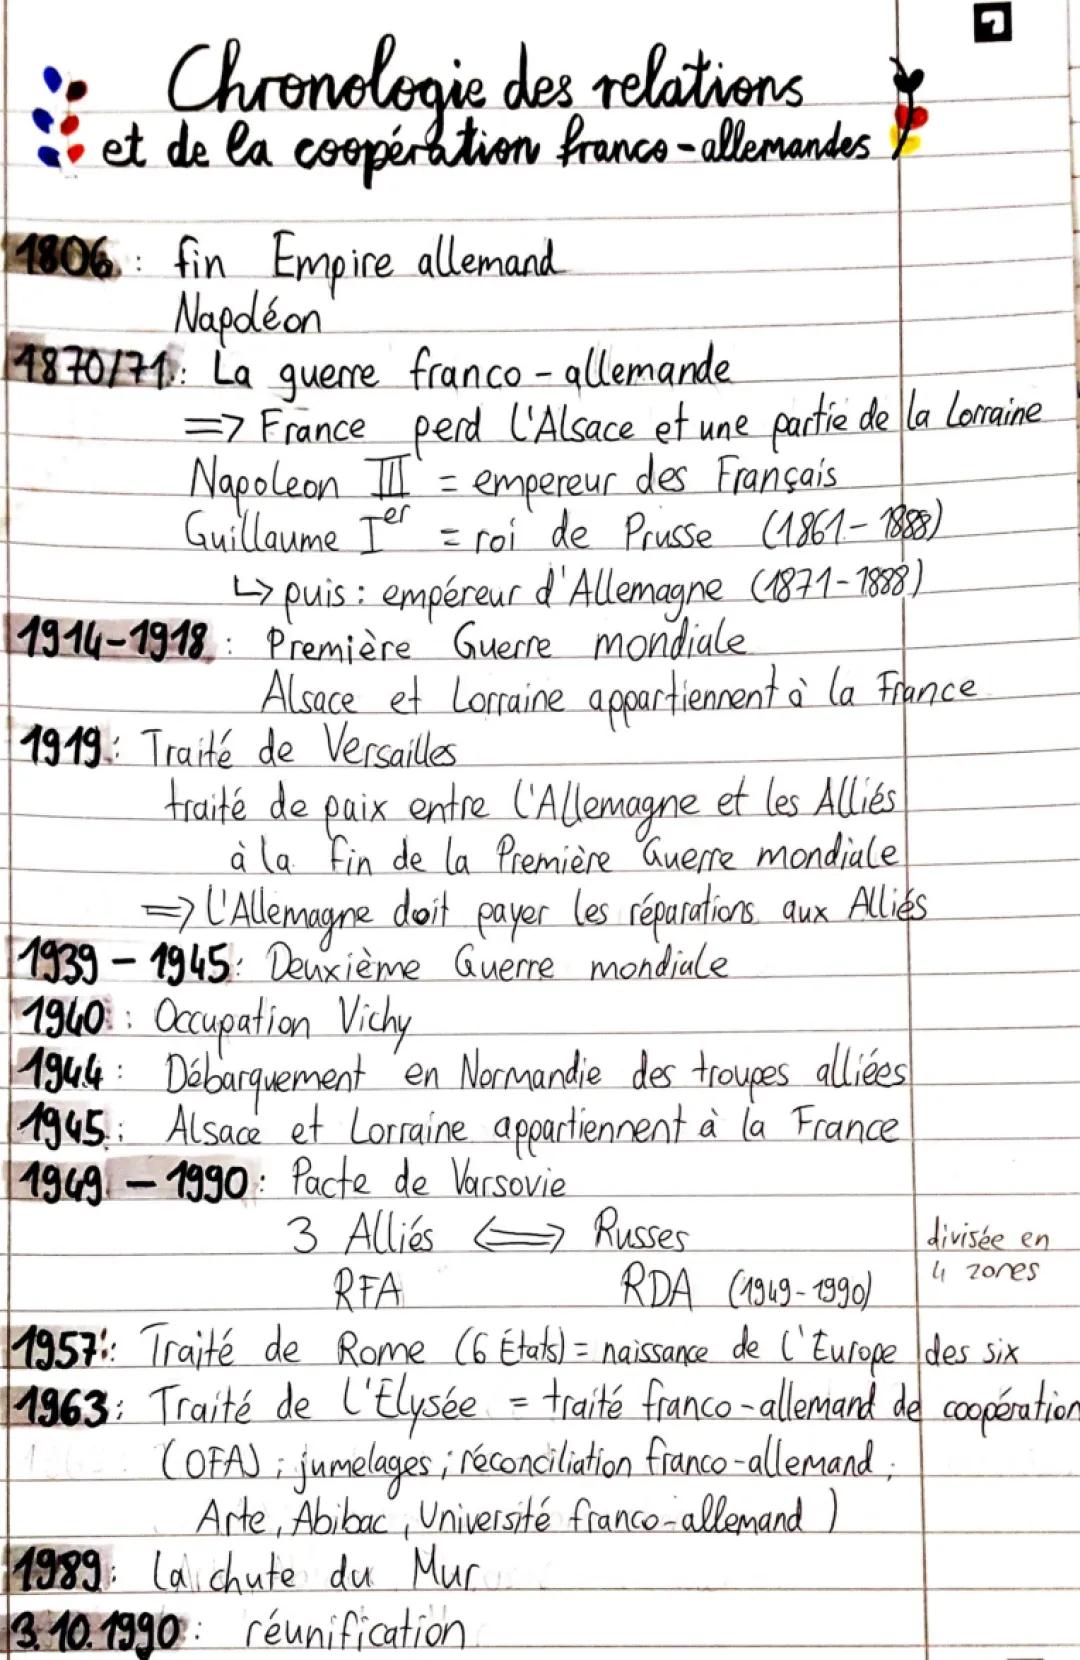 Chronologie des relations
et de la coopération franco-allemandes
1806 : fin Empire allemand
Napoléon
1870/71 : La guerre franco-allemande
=> France perd l'Alsace et une partie de la Lorraine
Napoleon III = empereur des Français
Guillaume Ier = roi de Prusse (1861-1888)
↳ puis : empéreur d'Allemagne (1871-1888)
1914-1918 : Première Guerre mondiale
Alsace et Lorraine appartiennent à la France
1919 : Traité de Versailles
traité de paix entre l'Allemagne et les Alliés
à la fin de la Première Guerre mondiale
=> L'Allemagne doit payer les réparations aux Alliés
1939 - 1945 : Deuxième Guerre mondiale
1940 : Occupation Vichy
1944 : Débarquement en Normandie des troupes alliées
1945 : Alsace et Lorraine appartiennent à la France
1949 - 1990 : Pacte de Varsovie
3 Alliés <=> Russes
divisée en
4 zones
RFA RDA (1949-1990)
1957 : Traité de Rome (6 États) = naissance de l'Europe des six
1963 : Traité de l'Elysée = traité franco-allemand de coopération
(OFAJ ; jumelages ; réconciliation franco-allemand ;
Arte, Abibac, Université franco-allemand)
1989 : la chute du Mur
3.10.1990 : réunification